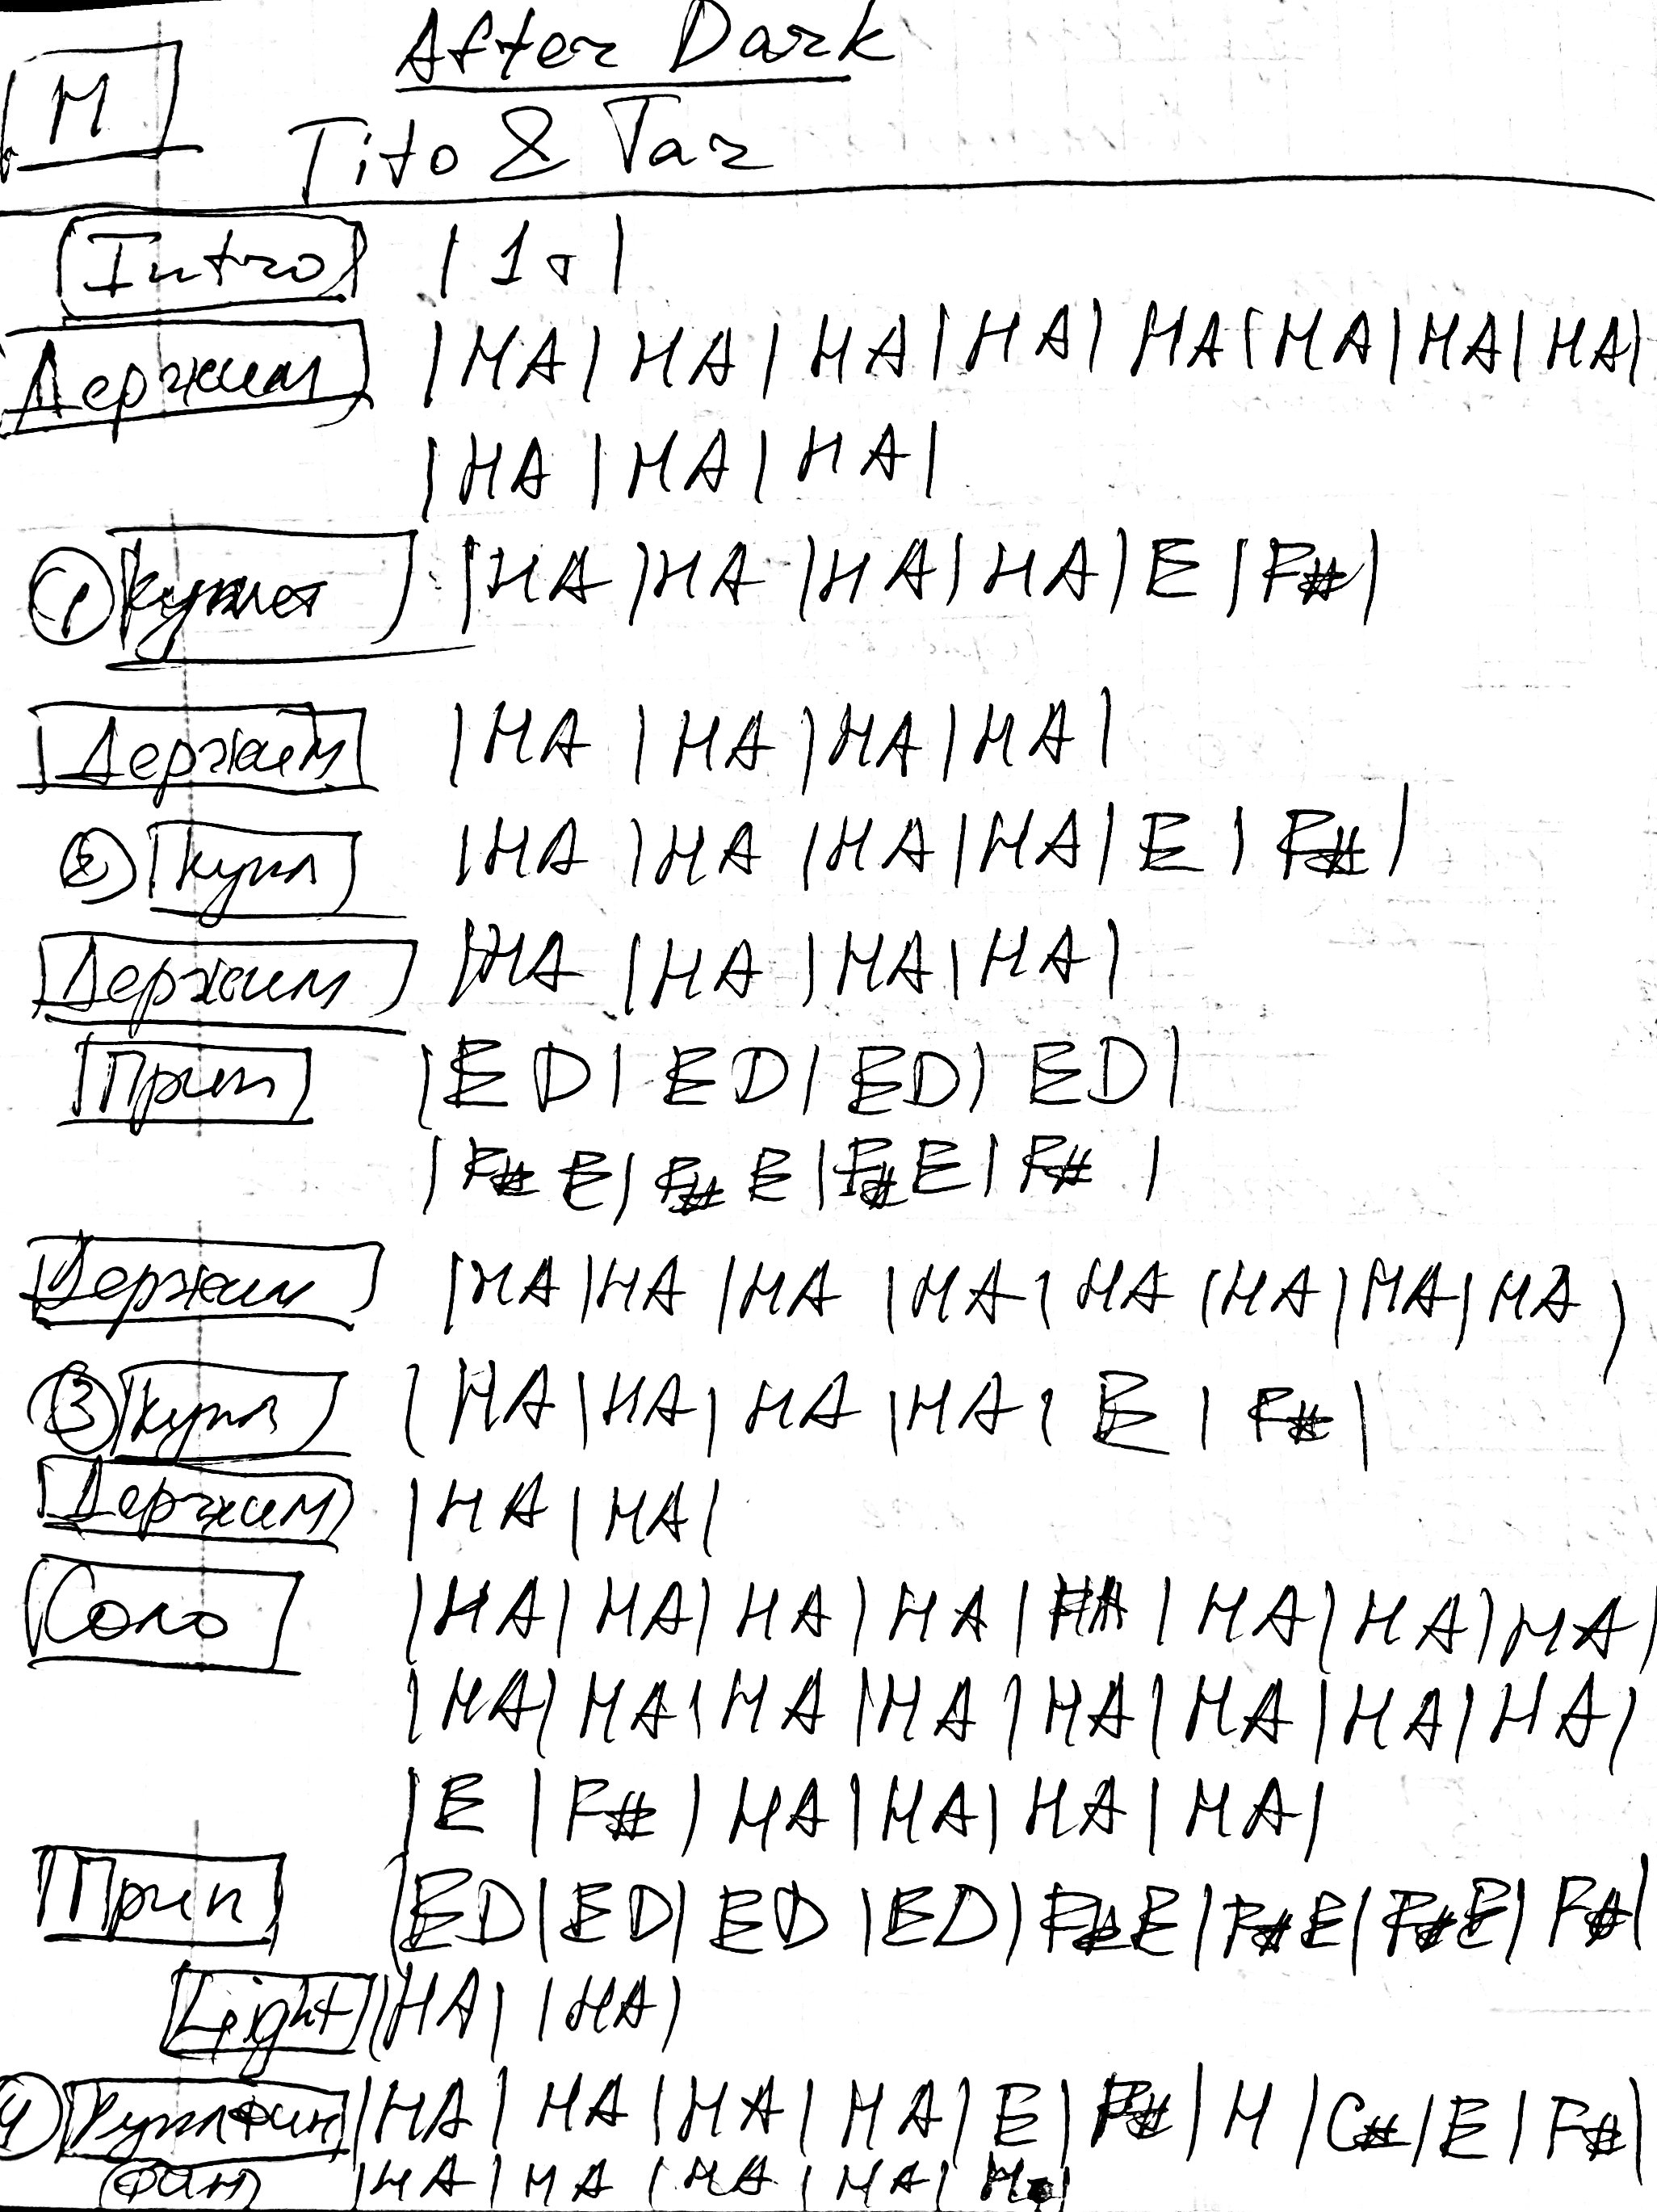 After Dark
H
Tito & Tar
Intro | 1 т |
Держим | HA | HA | HA | HA | HA | HA | HA | HA |
| HA | HA | HA |
① Куплет | HA | HA | HA | HA | E | F# |
Держим | HA | HA | HA | HA |
② Купл | HA | HA | HA | HA | E | F# |
Держим | HA | HA | HA | HA |
Прип | E D | E D | E D | E D |
| F# E | F# E | F# E | F# |
Держим | HA | HA | HA | HA | HA | HA | HA | HA |
③ Купл | HA | HA | HA | HA | E | F# |
Держим | HA | HA |
Соло | HA | HA | HA | HA | HA | HA | HA | HA |
| HA | HA | HA | HA | HA | HA | HA | HA |
| E | F# | HA | HA | HA | HA |
Прип | ED | ED | ED | ED | F# E | F# E | F# E | F# |
Light | HA | | HA |
④ Купл | HA | HA | HA | HA | E | F# | H | C# | E | F# |
| HA | HA | HA | HA | H |